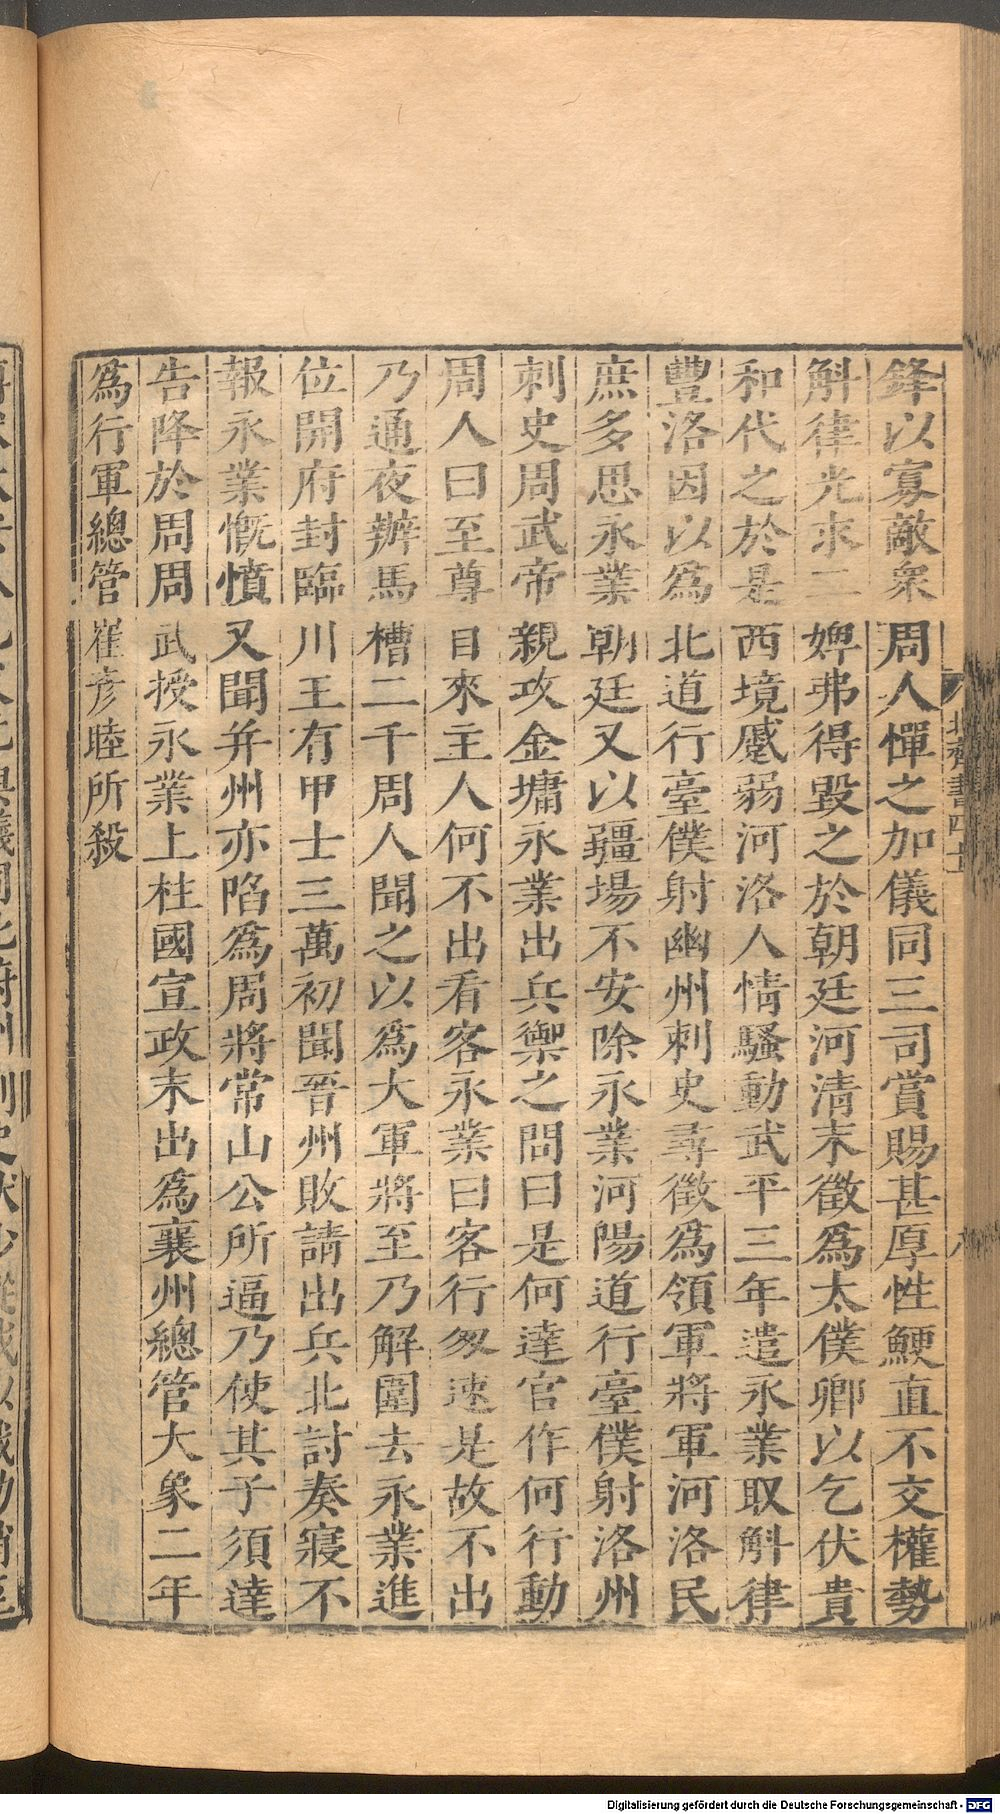 鋒以寡敵衆周人憚之加儀同三司賞賜甚厚性鯁直不交權勢
斛律光求二婢弗得毀之於朝廷河清末徵爲太僕卿以乞伏貴
和代之於是西境蹙弱河洛人情騷動武平三年遣永業取斛律
豐洛因以爲北道行臺僕射幽州刺史尋徵爲領軍將軍河洛民
庶多思永業朝廷又以疆場不安除永業河陽道行臺僕射洛州
刺史周武帝親攻金墉永業出兵禦之問曰是何達官作何行動
周人曰至尊自來主人何不出看客永業曰客行匆速是故不出
乃通夜辦馬槽二千周人聞之以爲大軍將至乃解圍去永業進
位開府封臨川王有甲士三萬初聞晉州敗請出兵北討奏寢不
報永業慨憤又聞并州亦陷爲周將常山公所逼乃使其子須達
告降於周周武授永業上柱國宣政末出爲襄州總管大象二年
爲行軍總管崔彥睦所殺
北齊書四十
八
Digitalisierung gefördert durch die Deutsche Forschungsgemeinschaft - DFG